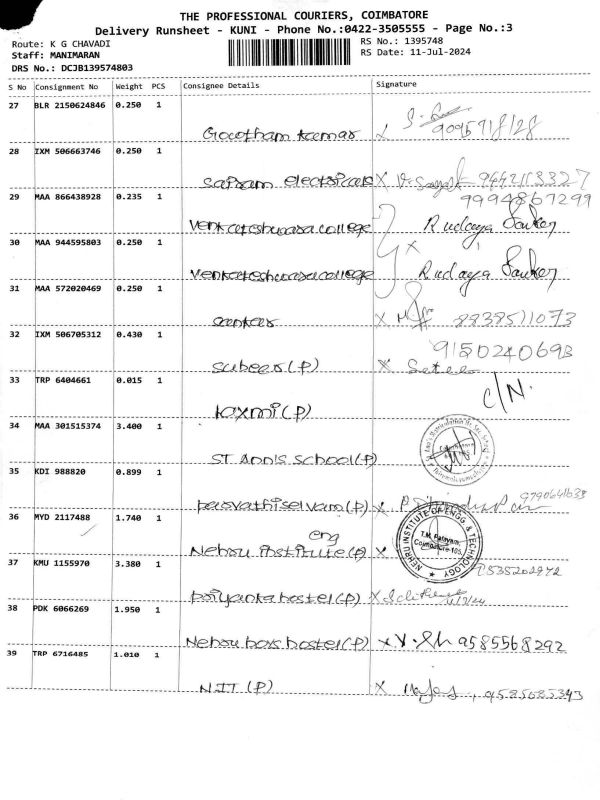 THE PROFESSIONAL COURIERS, COIMBATORE
Delivery Runsheet - KUNI - Phone No.:0422-3505555 - Page No.:3
Route: K G CHAVADI
Staff: MANIMARAN
DRS No.: DCJB139574803
RS No.: 1395748
RS Date: 11-Jul-2024
S No Consignment No Weight PCS Consignee Details Signature
27 BLR 2150624846 0.250 1
Gowtham kumar
28 IXM 506663746 0.250 1
sairam electricals X 9442153327
29 MAA 866438928 0.235 1 9994867299
venkateshwara college Rudaya Sanker
30 MAA 944595803 0.250 1
venkateshwara college X Rudaya Sanker
31 MAA 572020469 0.250 1
sankar X 8838511073
32 IXM 506705312 0.430 1 9150240693
subeer (P) X
33 TRP 6404661 0.015 1 C/N.
laxmi (P)
34 MAA 301515374 3.400 1
ST Anns School (P)
35 KDI 988820 0.899 1
parvathiselvam (P) X 9790641638
36 MYD 2117488 1.740 1
eng
Nehru institute (P) X
NEHRU INSTITUTE OF ENGG. & TECHNOLOGY
T.M. Palayam,
Coimbatore-105.
37 KMU 1155970 3.380 1 9535202972
priyanka hostel (P) X
38 PDK 6066269 1.950 1
Nehru boys hostel (P) X 9585568292
39 TRP 6716485 1.010 1
NIT (P) X 9585685343